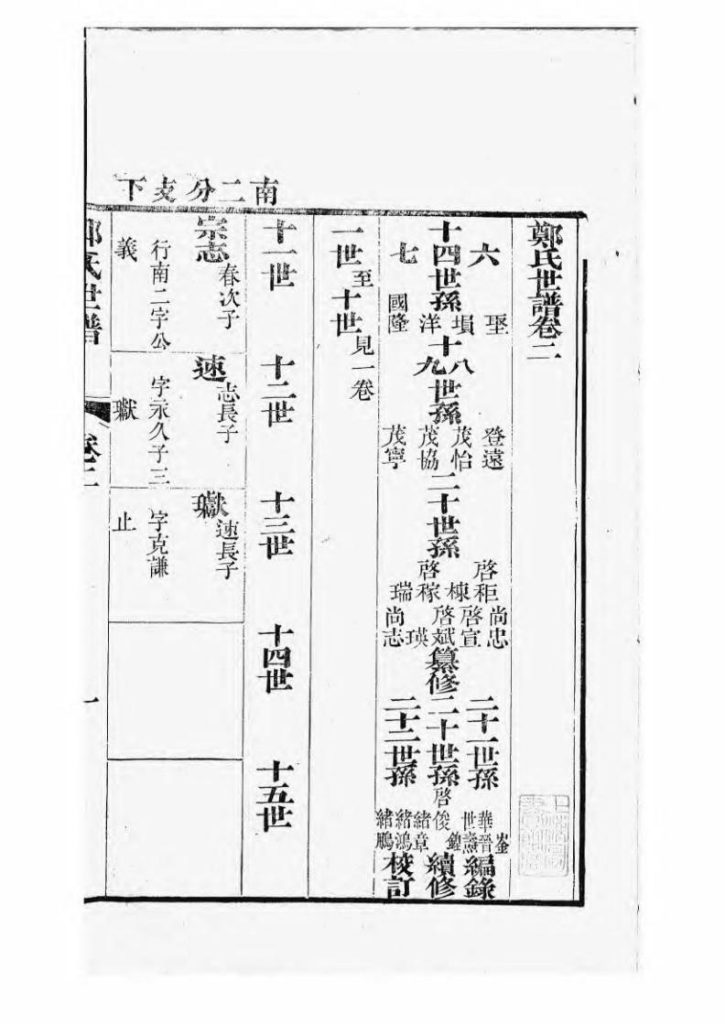 南二分支下
鄭氏世譜卷二
十
六
四
七
世孫
塤
洋
國隆
十
八
九
世孫
登遠
茂怡
茂協
茂寧
二十世孫
啓秬
棟
啓稼
瑞
尚忠
啓宣
啓斌
瑛
尚志
纂修
二十一世孫
華晉
世燾
崟
編錄
二十世孫
啓俊
緒章
續修
二十二世孫
緒鴻
緒鵬
校訂
一世至十世見一卷
十一世
十二世
十三世
十四世
十五世
宗志
春次子
行南二字公
義
速
志長子
字永久子三
瓛
瓛
速長子
字克謙
止
鄭氏世譜
卷二
一